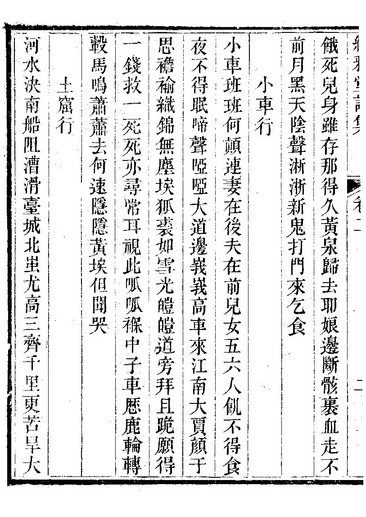 雅堂詩集 卷二 二
餓死兒身雖存那得久黃泉歸去耶娘邊斷骸裹血走不
前月黑天陰聲淅淅新鬼打門來乞食
小車行
小車班班何顛連妻在後夫在前兒女五六人飢不得食
夜不得眠啼聲啞啞大道邊峩峩高車來江南大賈顏于
思襜褕織錦無塵埃狐裘如雪光皚皚道旁拜且跪願得
一錢救一死死亦尋常耳視此呱呱褓中子車厯鹿輪轉
轂馬鳴蕭蕭去何速隱隱黃埃但聞哭
土窟行
河水決南船阻漕滑臺城北蚩尤高三齊千里更苦旱大